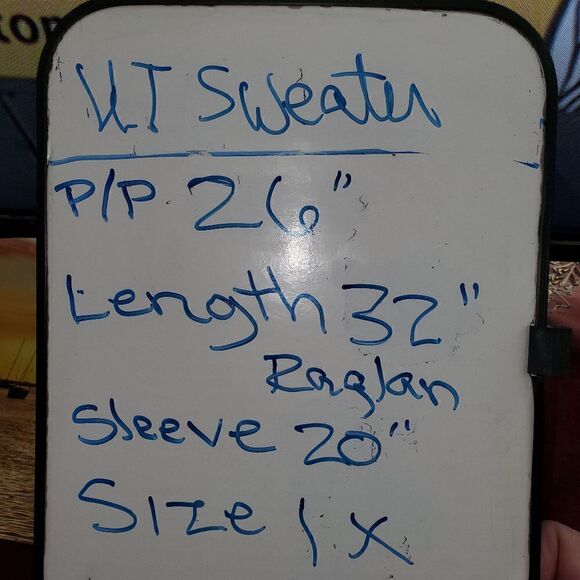 UT Sweater
P/P 26"
Length 32"
Raglan
Sleeve 20"
Size 1X